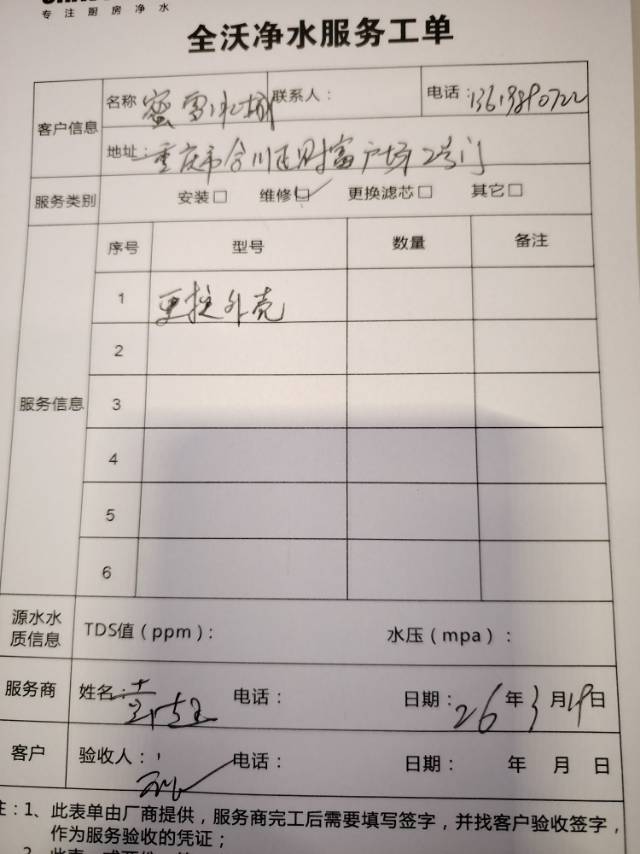 专注厨房净水
全沃净水服务工单
客户信息
名称 蜜雪冰城 联系人： 电话：
地址：重庆市合川区财富广场2号门
服务类别 安装□ 维修□✓ 更换滤芯□ 其它□
服务信息
序号 型号 数量 备注
1 更换外壳
2
3
4
5
6
源水水质信息 TDS值（ppm）： 水压（mpa）：
服务商 姓名： 电话： 日期：26年3月19日
客户 验收人： 电话： 日期： 年 月 日
注：1、此表单由厂商提供，服务商完工后需要填写签字，并找客户验收签字，
作为服务验收的凭证；